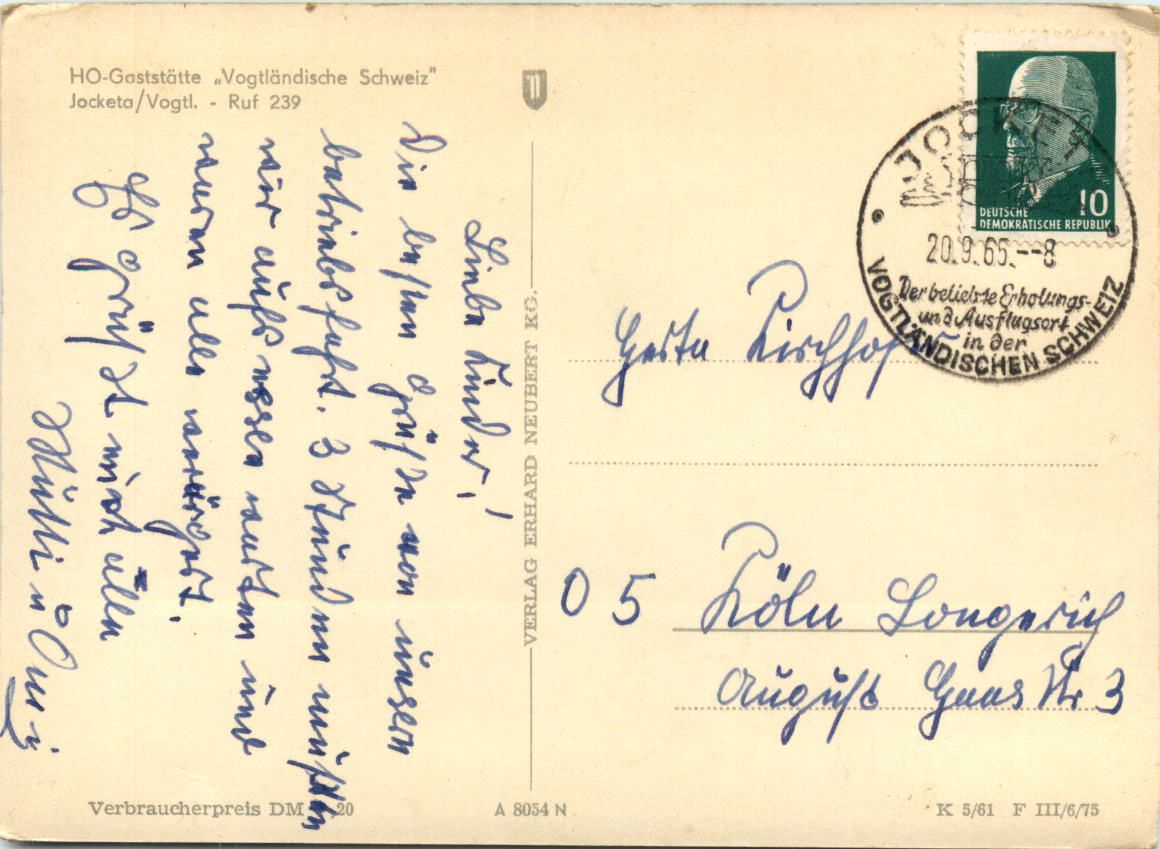 HO-Gaststätte „Vogtländische Schweiz"
Jocketa/Vogtl. - Ruf 239
Liebe Kinder!
Die besten Grüße von unsern
betriebsfahrt. 3 Stunden mußten
wir aufs essen warten und
waren alle verärgert.
Es grüßt euch alle
Mutti u
VERLAG ERHARD NEUBERT KG.
10
DEUTSCHE
DEMOKRATISCHE REPUBLIK
JOCKET
20.9.65.--8
Der beliebte Erholungs-
und Ausflugsort
in der
VOGTLÄNDISCHEN SCHWEIZ
Gerta Kirchhof
05 Köln Longerich
August Haas Str 3
Verbraucherpreis DM 20
A 8054 N
K 5/61 F III/6/75